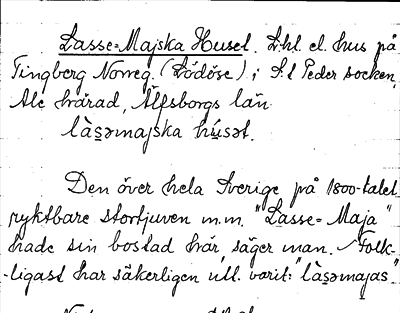 Lasse-Majska Huset. L.hl. el. hus på
Tingberg Norreg. (Lödöse) i S:t Peder socken,
Ale härad, Älfsborgs län
là̱səmajska hú̱sət.
Den över hela Sverige på 1800-talet
ryktbare stortjuven m.m. "Lasse-Maja"
hade sin bostad här, säger man. Folk-
-ligast har säkerligen utt. varit: "là̱səmajas"